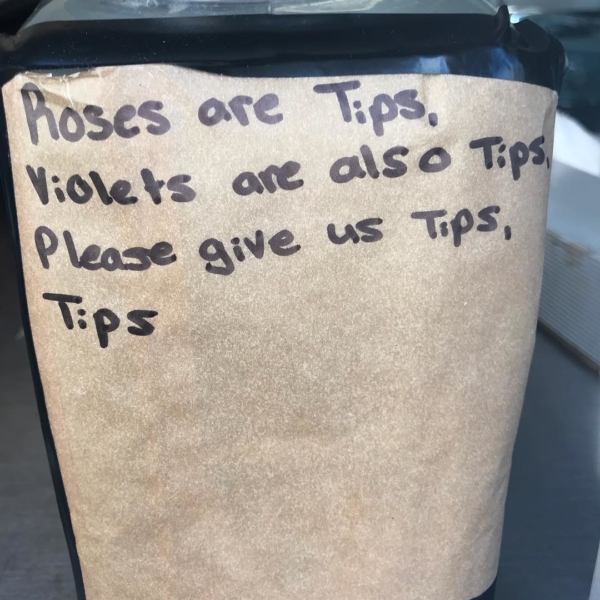 Roses are Tips,
Violets are also Tips,
Please give us Tips,
Tips